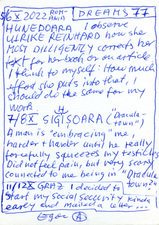 6/X 2022 ROMANIA DREAMS 77
HUNEDOARA I observe
ULRIKE REINHARD how she
MOST DILLIGENTLY corrects her
text for her book or an article
I think to myself: how much
effort she puts into that, I
should do the same for my
work
7/8X SIGISOARA ("Dracula-
town")
A man is "embracing" me,
harder + harder until he really
forcefully squeezes my testicles
Did not feel pain, but very scary
connected to me being in "Dracula
town"?
11/12X GRAZ I decided to
start my social security kinda
early and mailed a letter...